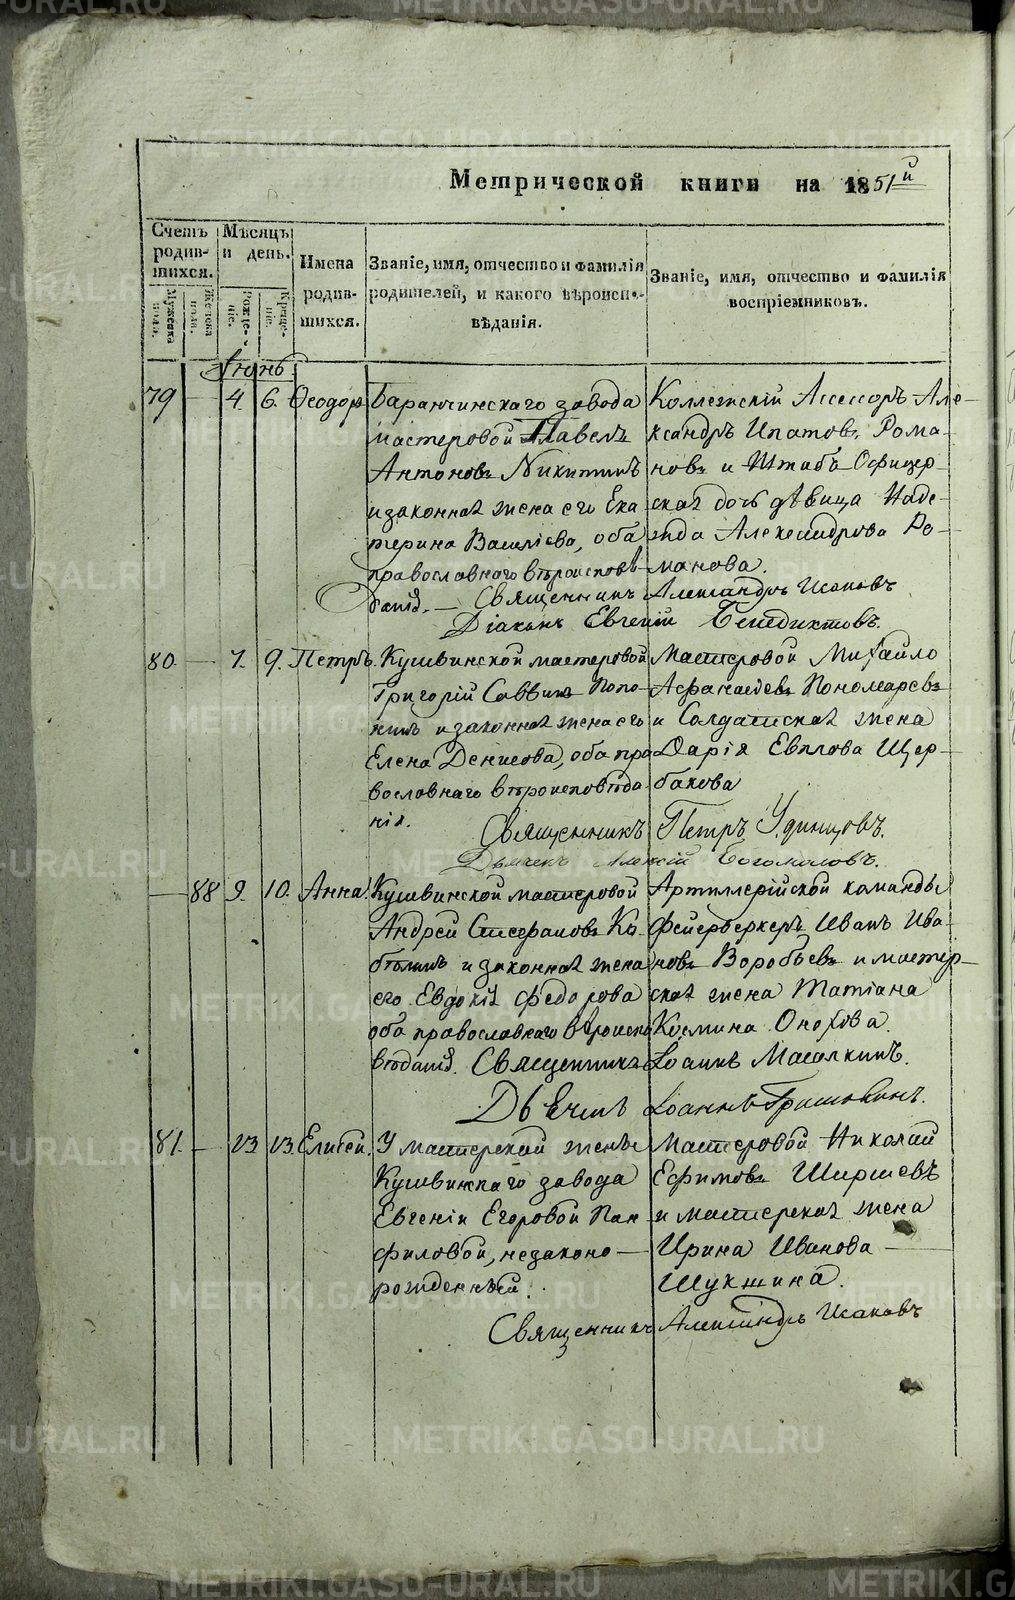 METRIKI.GASO-URAL.RU
Метрической книги на 1851й
Счетъ родив-шихся.
Мужеска пола.
Женска пола.
Мѣсяцъ и день.
Рожде-нiе.
Креще-нiе.
Имена родив-шихся.
Званiе, имя, отчество и фамилiя родителей, и какого вѣроиспо-вѣданiя.
Званiе, имя, отчество и фамилiя воспрiемниковъ.
Iюнь
79 — 4. 6. Ѳеодоръ
Баранчинскаго завода
мастеровой Павелъ
Антоновъ Никитинъ
и законная жена его Ека
терина Васильева, оба
православнаго вѣроисповѣ
данiя. —
Коллежскiй Ассессоръ Але-
ксандръ Ипатовъ Рома-
новъ и Штабъ Офицер-
ская дочь дѣвица Наде-
жда Александрова Ро-
манова.
Священникъ Александръ Исаковъ
Дiаконъ Евгенiй Бенедиктовъ.
80. — 7. 9. Петръ.
Кушвинской мастеровой
Григорiй Саввинъ Попо-
кинъ и законная жена его
Елена Денисова, оба пра
вославнаго вѣроисповѣда
нiя.
Мастеровой Михайло
Афанасьевъ Пономаревъ
и Солдатская жена
Дарiя Евплова Щер-
бакова
Священникъ Петръ Удинцовъ.
Дьячекъ Алексiй Богомоловъ.
— 88 9. 10. Анна.
Кушвинской мастеровой
Андрей Стефановъ Ко-
былинъ и законная жена
его Евдокiя Федорова
оба православнаго вѣроиспо
вѣданiя.
Артиллерiйской команды
фейерверкеръ Иванъ Ива-
новъ Воробьевъ и мастер-
ская жена Татiана
Космина Онохова.
Священникъ Iоаннъ Масалкинъ.
Дьячекъ Iоаннъ Гришовинъ.
81. — 13 13. Елисей.
У мастерской женъ
Кушвинскаго завода
Евгенiи Егоровой Пан-
филовой, незаконо-
рожденнѣй.
Мастеровой Николай
Ефимовъ Ширшевъ
и мастерская жена
Ирина Иванова —
Шукшина.
Священникъ Александръ Исаковъ